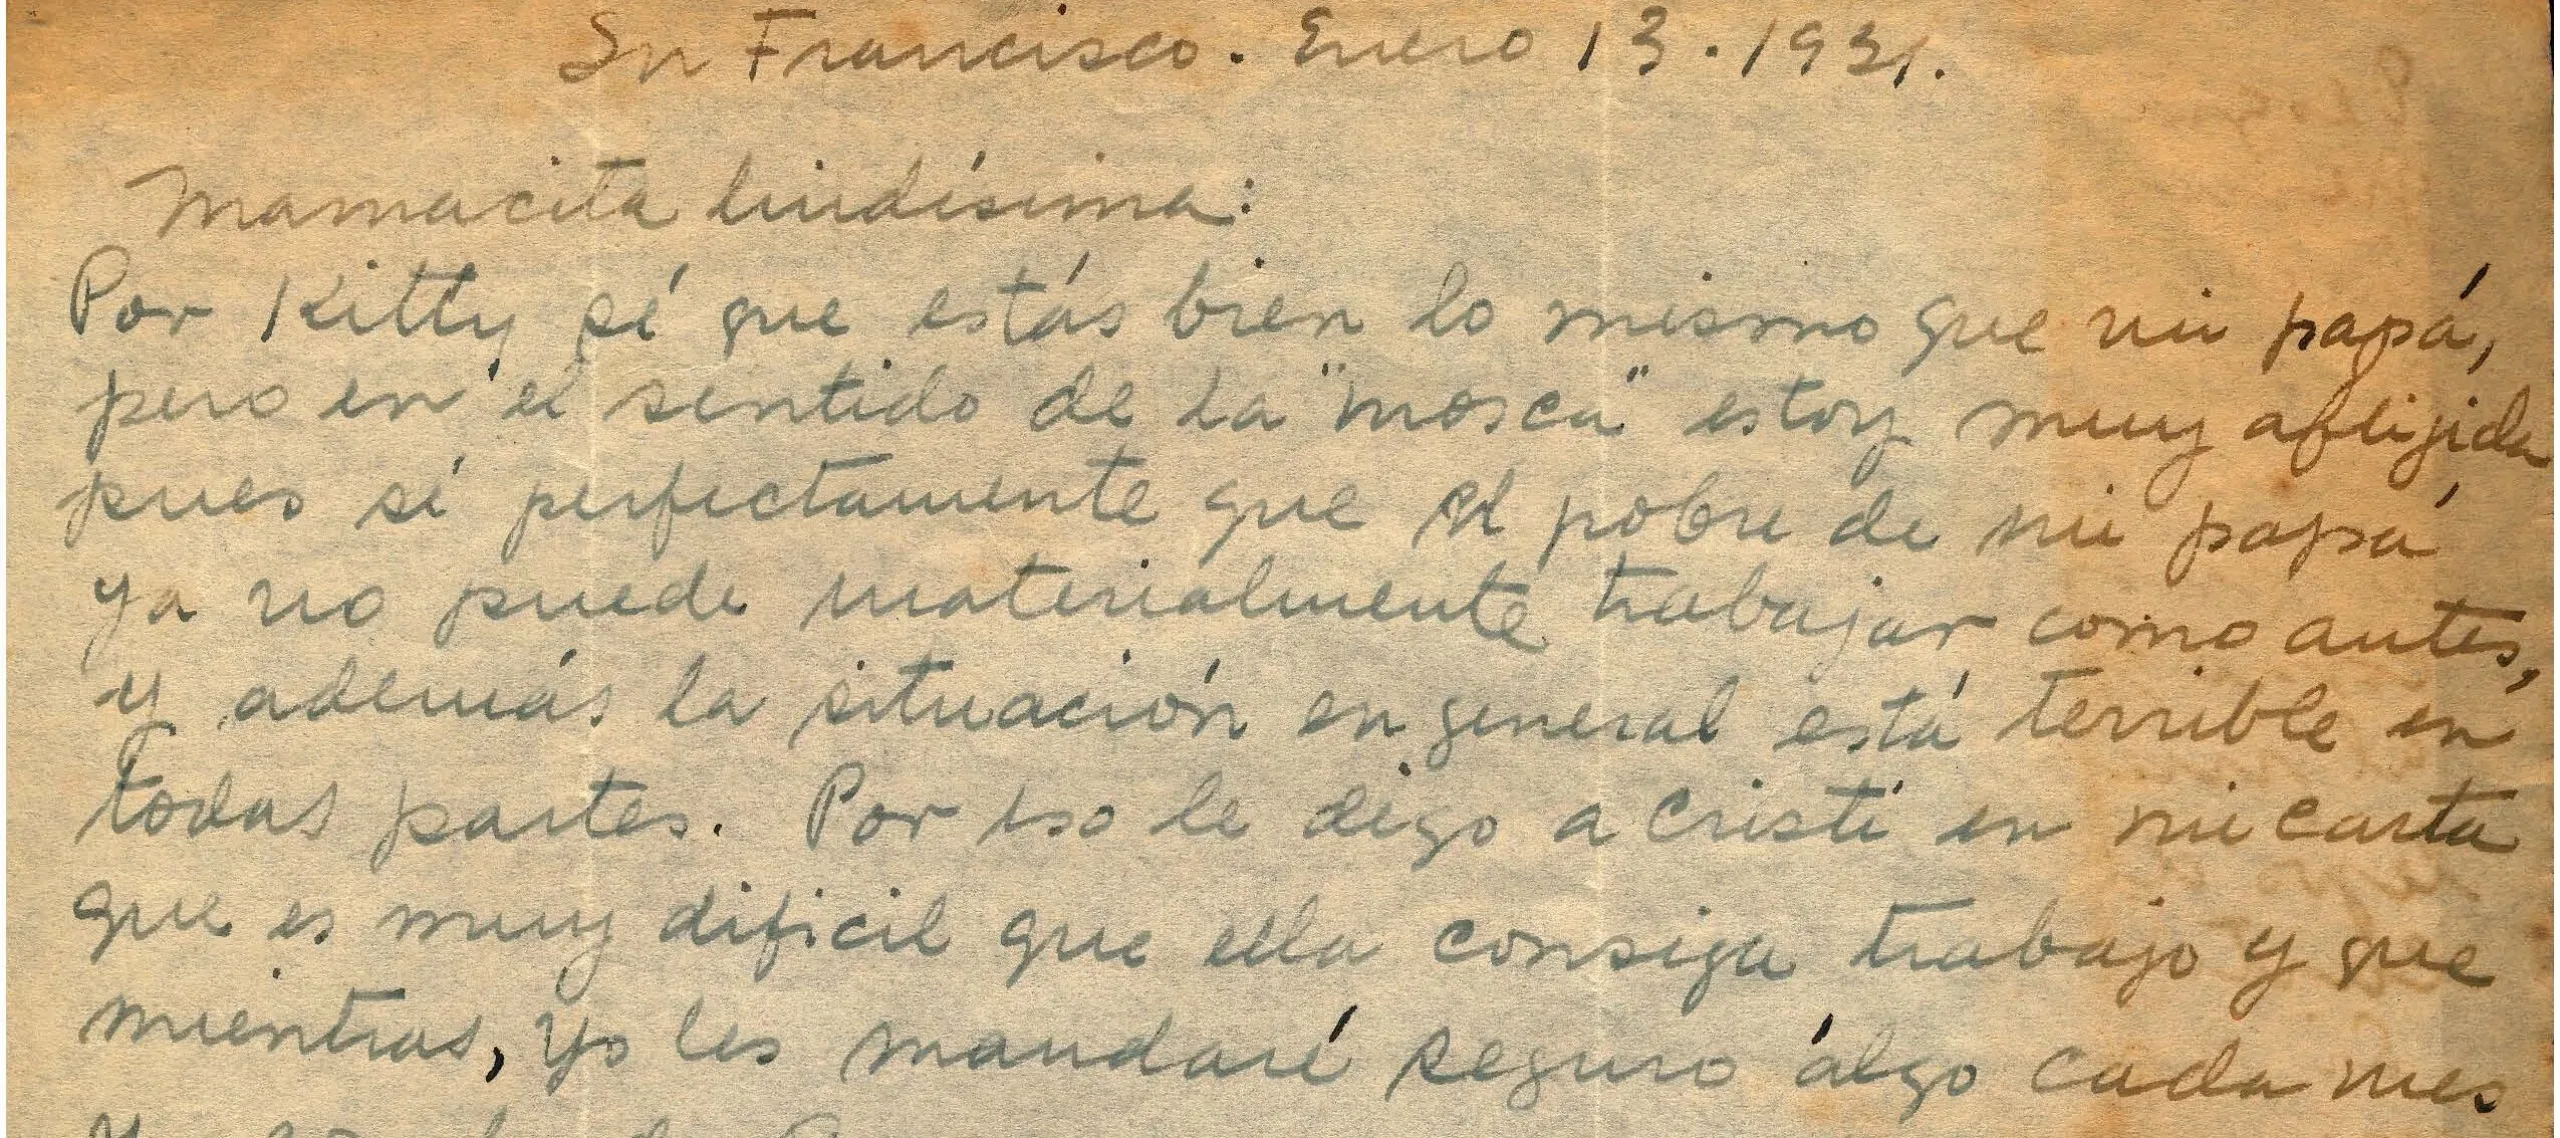 Sn Francisco. Enero 13. 1931.
Mamacita lindísima:
Por Kitty sé que estás bien lo mismo que mi papá,
pero en el sentido de la "mosca" estoy muy aflijida
pues sé perfectamente que el pobre de mi papá
ya no puede materialmente trabajar como antes,
y además la situación en general está terrible en
todas partes. Por eso le digo a Cristi en mi carta
que es muy dificil que ella consiga trabajo y que
mientras, yo les mandaré seguro álgo cada mes